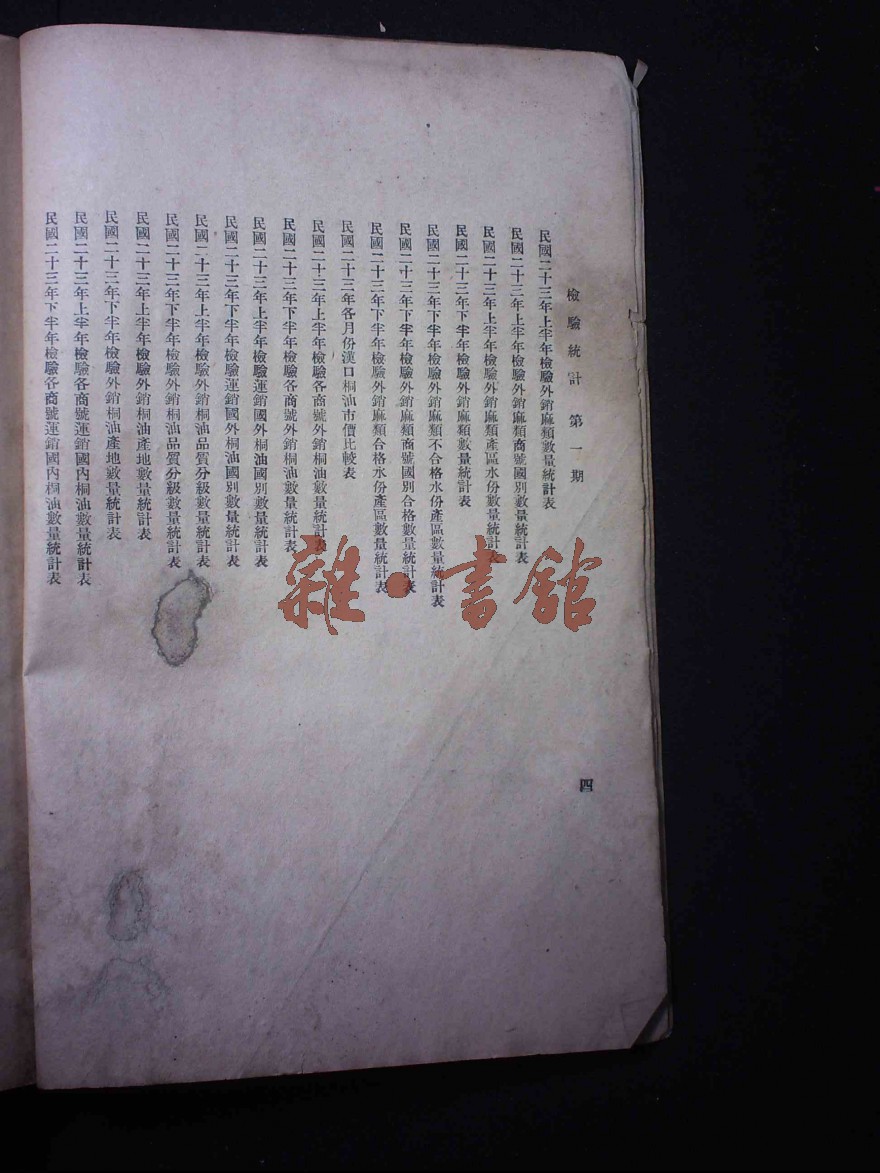 檢驗統計 第一期
四
民國二十三年上半年檢驗外銷麻類數量統計表
民國二十三年上半年檢驗外銷麻類商號國別數量統計表
民國二十三年上半年檢驗外銷麻類產區水份數量統計表
民國二十三年下半年檢驗外銷麻類數量統計表
民國二十三年下半年檢驗外銷麻類不合格水份產區數量統計表
民國二十三年下半年檢驗外銷麻類商號國別合格數量統計表
民國二十三年下半年檢驗外銷麻類合格水份產區數量統計表
民國二十三年各月份漢口桐油市價比較表
民國二十三年上半年檢驗各商號外銷桐油數量統計表
民國二十三年下半年檢驗各商號外銷桐油數量統計表
民國二十三年上半年檢驗運銷國外桐油國別數量統計表
民國二十三年下半年檢驗運銷國外桐油國別數量統計表
民國二十三年上半年檢驗外銷桐油品質分級數量統計表
民國二十三年下半年檢驗外銷桐油品質分級數量統計表
民國二十三年上半年檢驗外銷桐油產地數量統計表
民國二十三年下半年檢驗外銷桐油產地數量統計表
民國二十三年上半年檢驗各商號運銷國內桐油數量統計表
民國二十三年下半年檢驗各商號運銷國內桐油數量統計表
雜·書館